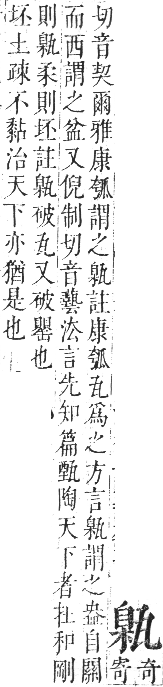 甈奇寄
切音契爾雅康瓠謂之甈註康瓠瓦爲之方言甈謂之盎自關
而西謂之盆又倪制切音藝法言先知篇甄陶天下者在和剛
則甈柔則坯註甈破瓦又破罌也
坯土疎不黏治天下亦猶是也